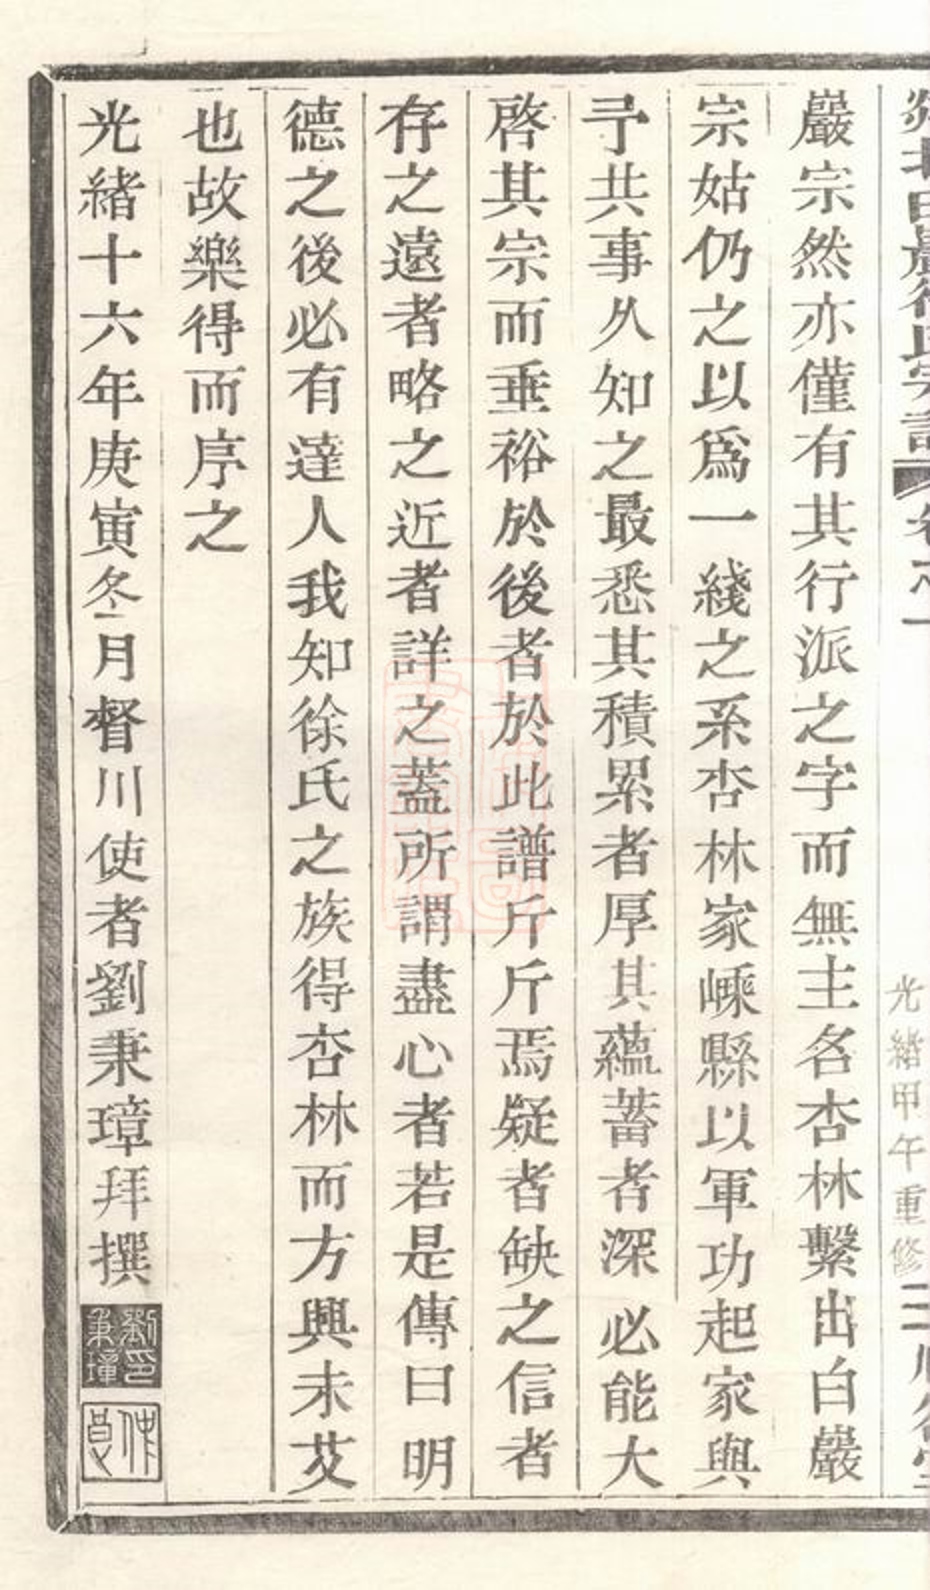 卷之一
光緒甲午重修
二
巖宗然亦僅有其行派之字而無主名杏林繫出白巖
宗姑仍之以爲一綫之系杏林家嵊縣以軍功起家與
予共事久知之最悉其積累者厚其蘊蓄者深必能大
啓其宗而垂裕於後者於此譜斤斤焉疑者缺之信者
存之遠者略之近者詳之蓋所謂盡心者若是傳曰明
德之後必有達人我知徐氏之族得杏林而方興未艾
也故樂得而序之
光緒十六年庚寅冬月督川使者劉秉璋拜撰
劉印秉璋